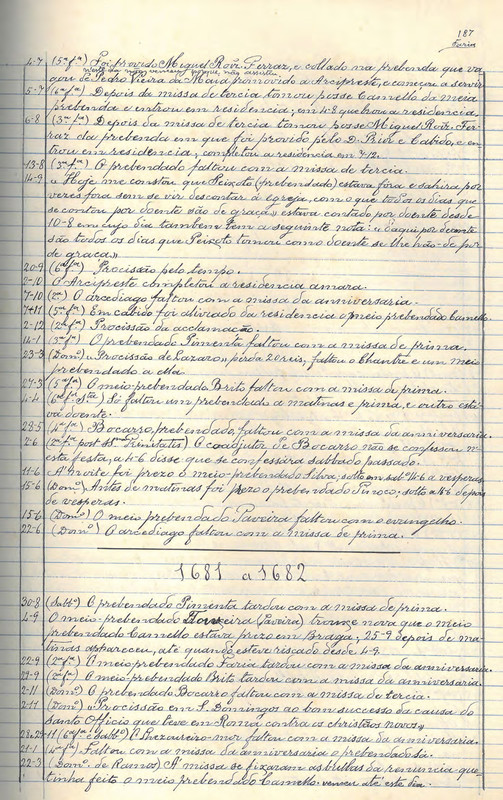 187
Faria
4-7 (5ª fª) Foi provido Miguel Roiz Ferraz, e collado na prebenda que va-
gou de Pedro Vieira da Maia promovido a Arcipreste, e começou a servir
5-7 (6ª fª) Depois da missa de tercia tomou posse Camello da meia
prebenda e entrou em residencia; em 4-8 quebrou a residencia.
6-8 (3ª fª) Depois da missa de tercia tomou posse Miguel Roiz Fer-
raz da prebenda em que foi provido pelo D. Prior e Cabido, e en-
trou em residencia; completou a residencia em 7-12.
13-8 (3ª fª) O prebendado faltou com a missa de tercia.
14-9 «Hoje me constou que Peixoto (prebendado) estava fóra e sahira por
vezes fora sem se vir descontar á Egreja, com o que todos os dias que
se contou por doente são de graça» estava contado por doente desde
10-8 em cujo dia tambem tem a seguinte nota: «daqui por deante
são todos os dias que Peixoto tomou como doente se lhe hão-de pôr
de graça»
20-9 (6ª fª) Procissão pelo tempo.
2-10 O Arcipreste completou a residencia amara.
7-10 (2ª) O arcediago faltou com a missa da anniversaria.
7-11 (5ª fª) Em cabido foi aliviado da residencia o meio prebendado Camello.
2-12 (2ª fª) Procissão da acclamação.
14-1 (3ª fª) O prebendado Pimenta faltou com a missa de prima.
23-3 (Domº) «Procissão de Lazaro» perda 20 reis; faltou o Chantre e um meio
prebendado a ella.
27-3 (5ª fª) O meio-prebendado Brito faltou com a missa de prima.
4-4 (6ª fª Stª) Só faltou um prebendado a matinas e prima, e outro esta-
va doente.
28-5 (4ª fª) Bocarro, prebendado, faltou com a missa da anniversaria.
2-6 (2ª fª post Trinitatis) O coadjutor de Bocarro não se confessou n'
esta festa, a 4-6 disse que se confessára sabbado passado.
11-6 Á noite foi prezo o meio-prebendado Silva; solto em 4-6 a vesperas
15-6 (Domº) Antes de matinas foi prezo o prebendado Pinoco; solto a 4-6 depois
de vesperas.
15-6 (Domº) O meio prebendado Taveira faltou com o evangelho.
22-6 (Domº) O arcediago faltou com a missa de prima.
1681 a 1682
30-8 (Sabbº) O prebendado Pimenta tardou com a missa de prima.
4-9 O meio-prebendado (Taveira) trouxe nova que o meio
prebendado Camello estava prezo em Braga; 25-9 depois de ma-
tinas appareceu, até quando esteve riscado desde 4-9.
22-9 (2ª fª) O meio prebendado Faria tardou com a missa da anniversaria.
29-9 (2ª fª) O meio-prebendado Brito tardou com a missa da anniversaria.
2-11 (Domº) O prebendado Bocarro faltou com a missa de tercia.
2-11 (Domº) «Procissão em S. Domingos ao bom successo da causa do
Santo Officio que teve em Roma contra os christãos novos»
28 e 29-11 (6ª fª e Sabbº) O Thezoureiro-mór faltou com a missa da anniversaria.
21-1 (4ª fª) Faltou com a missa da anniversaria o prebendado Sá.
22-3 (Domº de Ramos) Á missa se fixaram as bullas da renuncia que
tinha feito o meio prebendado Camello. venceu até este dia.